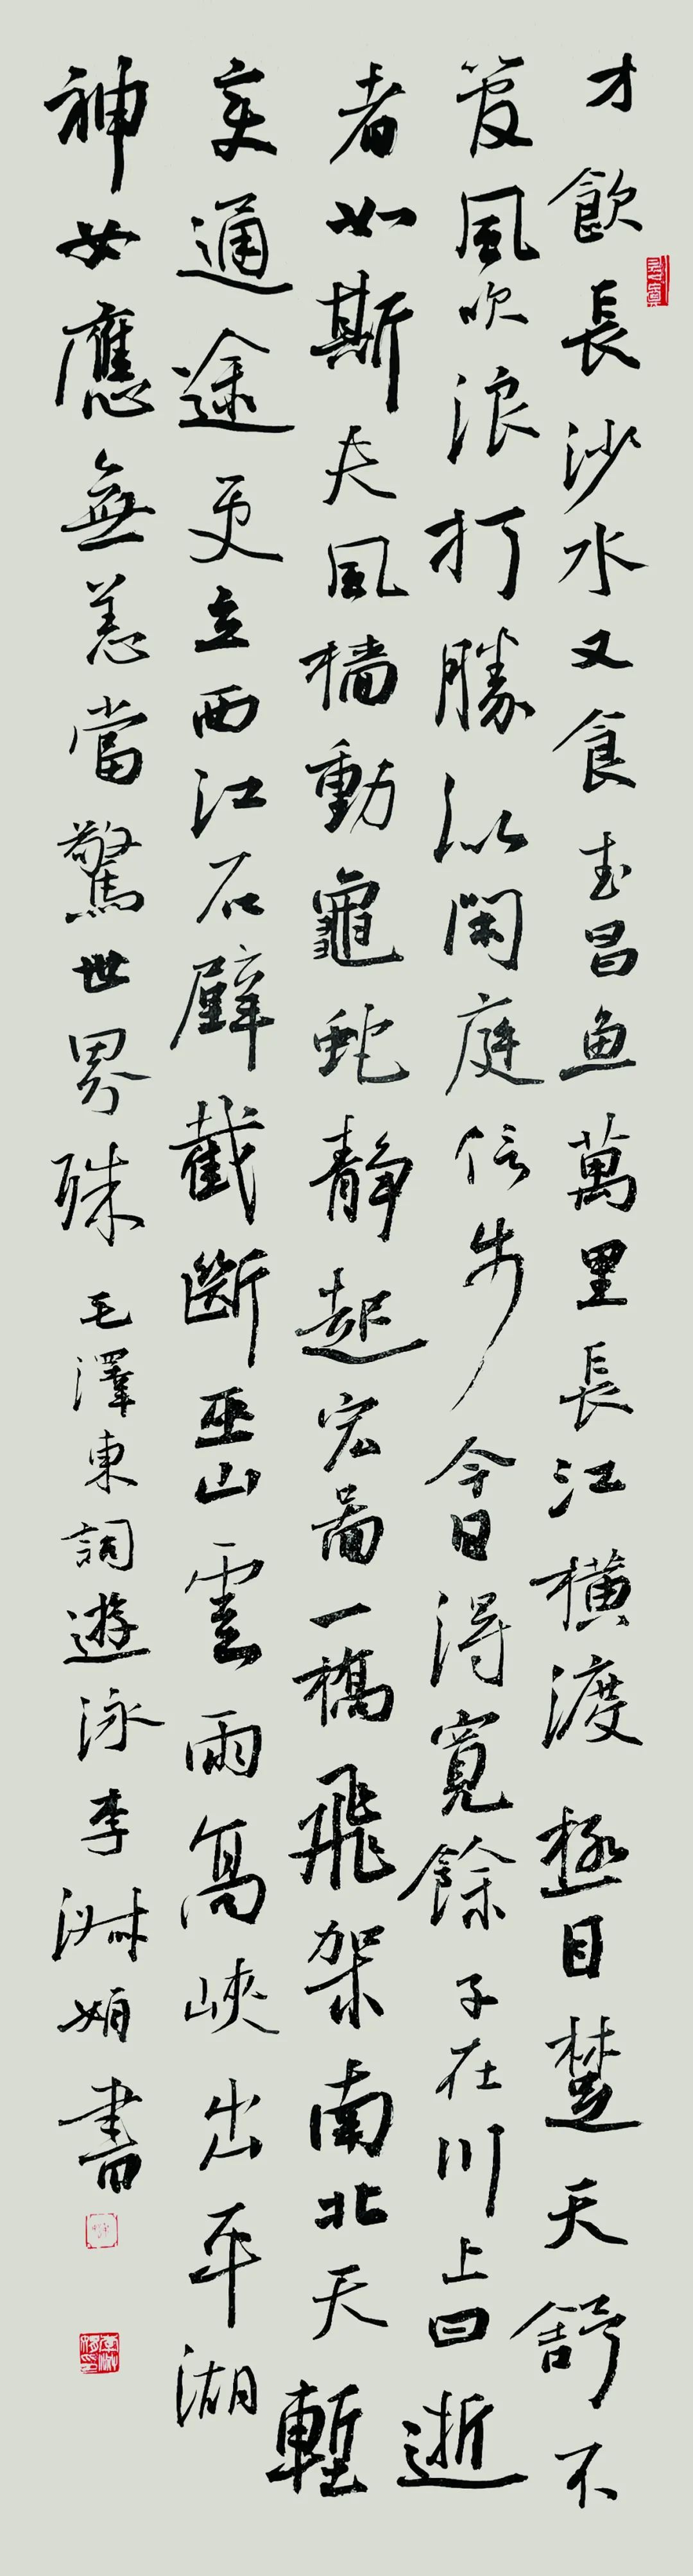 才飲長沙水又食武昌鱼萬里長江橫渡極目楚天舒不
管風吹浪打勝似閑庭信步今日得寬餘子在川上曰逝
者如斯夫風檣動龜蛇静起宏圖一橋飛架南北天塹
變通途更立西江石壁截斷巫山雲雨高峽出平湖
神女應無恙當驚世界殊 毛澤東詞遊泳李淑娟書